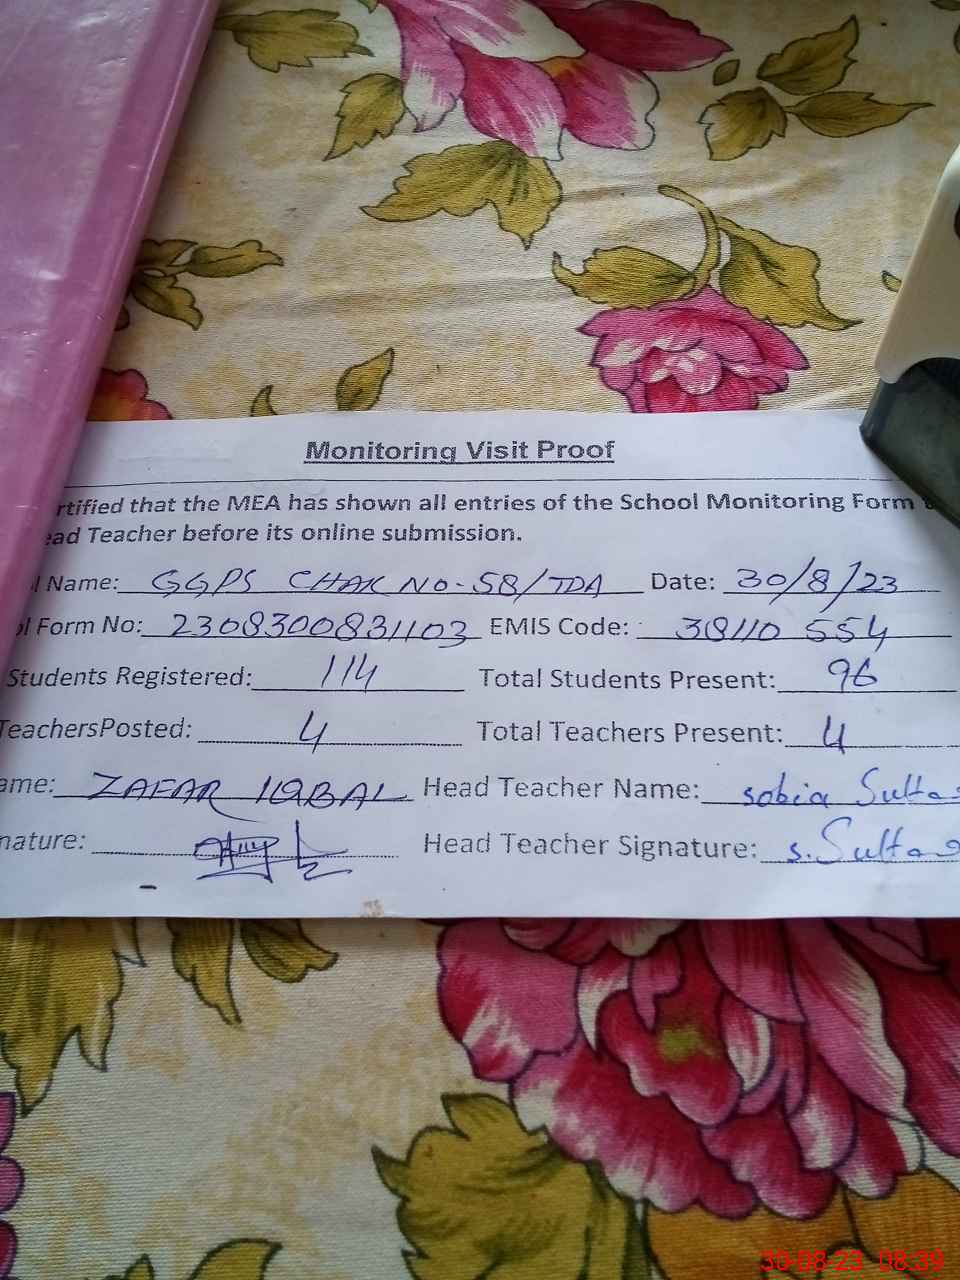 Monitoring Visit Proof
rtified that the MEA has shown all entries of the School Monitoring Form
ead Teacher before its online submission.
l Name: GGPS CHAK NO-58/TDA Date: 30/8/23
ol Form No: 2308300831103 EMIS Code: 38110 554
Students Registered: 114 Total Students Present: 96
TeachersPosted: 4 Total Teachers Present: 4
ame: ZAFAR IQBAL Head Teacher Name: sobia Sulta
nature: Head Teacher Signature: s. Sulta
30-08-23 08:39